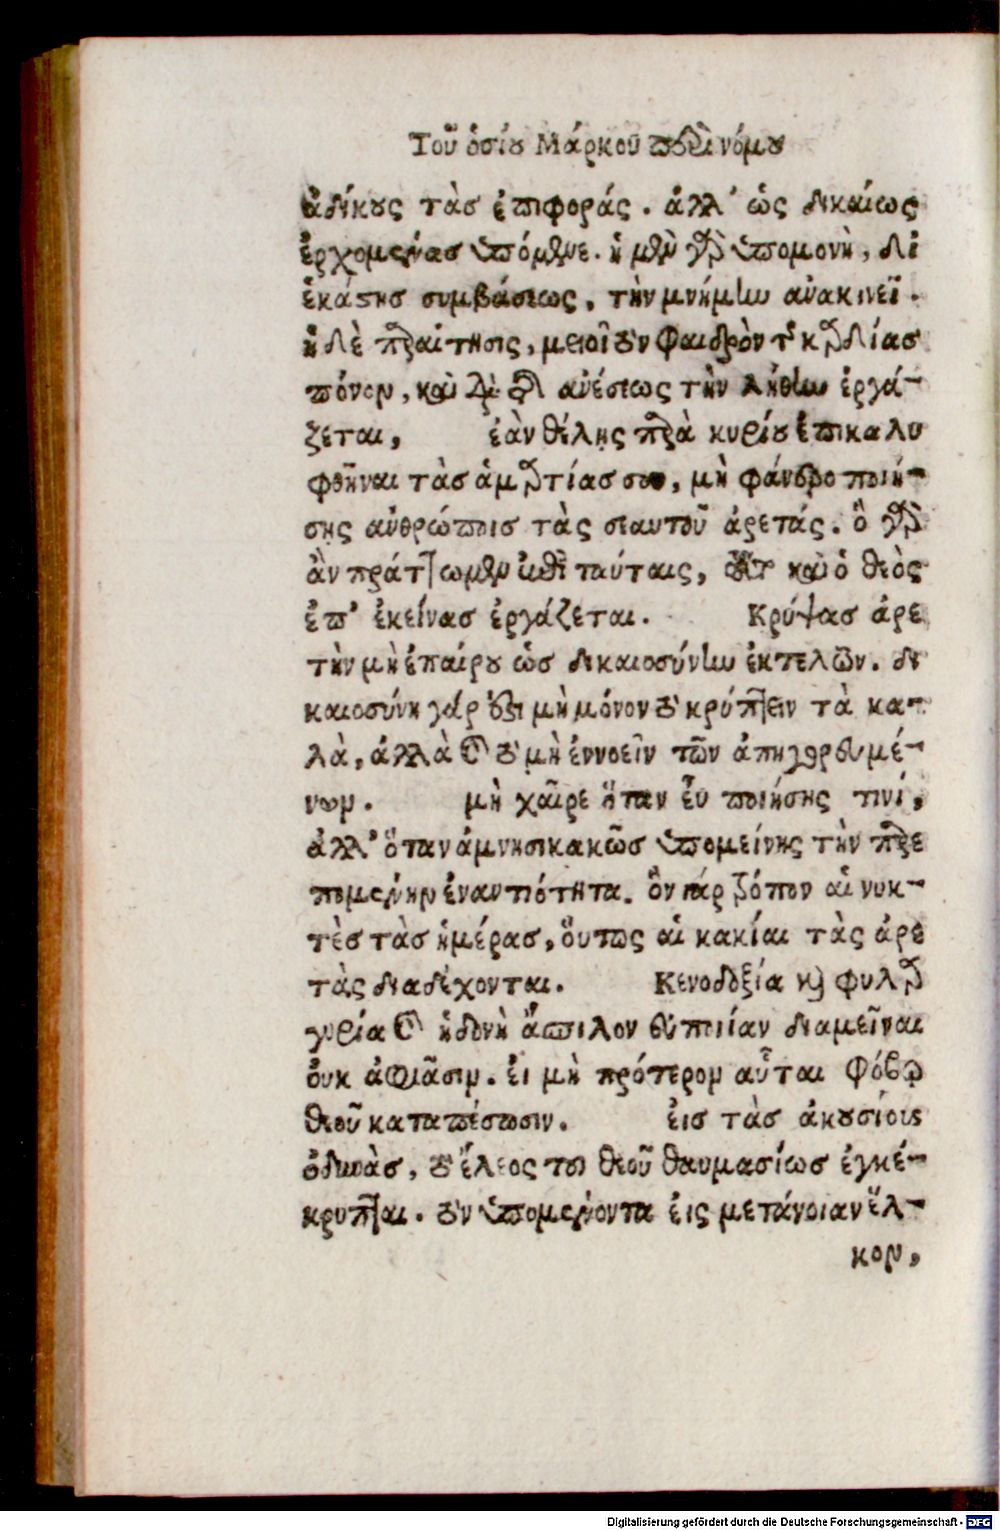 Τοῦ ὁσίου Μάρκου περὶ νόμου
ἀδίκους τὰς ἐπιφοράς. ἀλλ' ὡς δικαίως
ἐρχομένας ὑπόμενε. ἡ μὲν γὰρ ὑπομονὴ, δι'
ἑκάστης συμβάσεως, τὴν μνήμην ἀνακινεῖ.
ἡ δὲ παραίτησις, μειοῖ τὸν φαιδρὸν τῆς καρδίας
πόνον, καὶ διὰ τῆς ἀνέσεως τὴν λήθην ἐργά-
ζεται, ἐὰν θέλης παρὰ κυρίου ἐπικαλυ
φθῆναι τὰς ἁμαρτίας σου, μὴ φάνερο ποιή-
σης ἀνθρώποις τὰς σεαυτοῦ ἀρετάς. ὃ γὰρ
ἂν πράττωμεν ἐπὶ ταύταις, τοῦτο καὶ ὁ θεὸς
ἐπ' ἐκείνας ἐργάζεται. Κρύψας ἀρε
τὴν μὴ ἐπαίρου ὡς δικαιοσύνην ἐκτελῶν. δι
καιοσύνη γάρ ἐστι μὴ μόνον τὸ κρύπτειν τὰ κα-
λὰ, ἀλλὰ καὶ τὸ μὴ ἐννοεῖν τῶν ἀπηγορευμέ-
νων. μὴ χαῖρε ὅταν εὖ ποιήσης τινί,
ἀλλ' ὅταν ἀμνησικακῶς ὑπομείνης τὴν παρε
πομένην ἐναντιότητα. ὃν γάρ τρόπον αἱ νυκ-
τὲς τὰς ἡμέρας, οὕτως αἱ κακίαι τὰς ἀρε
τὰς διαδέχονται. Κενοδοξία καὶ φυλαρ
γυρία καὶ ἡδονὴ ἄσπιλον εὐποιίαν διαμεῖναι
οὐκ ἀφιᾶσιν. εἰ μὴ πρότερον αὗται φόβῳ
θεοῦ καταπέσωσιν. εἰς τὰς ἀκουσίους
ὀδύνας, τὸ ἔλεος τοῦ θεοῦ θαυμασίως ἐγκέ-
κρυπται. τὸν ὑπομένοντα εἰς μετάνοιαν ἕλ-
κον,
Digitalisierung gefördert durch die Deutsche Forschungsgemeinschaft - DFG